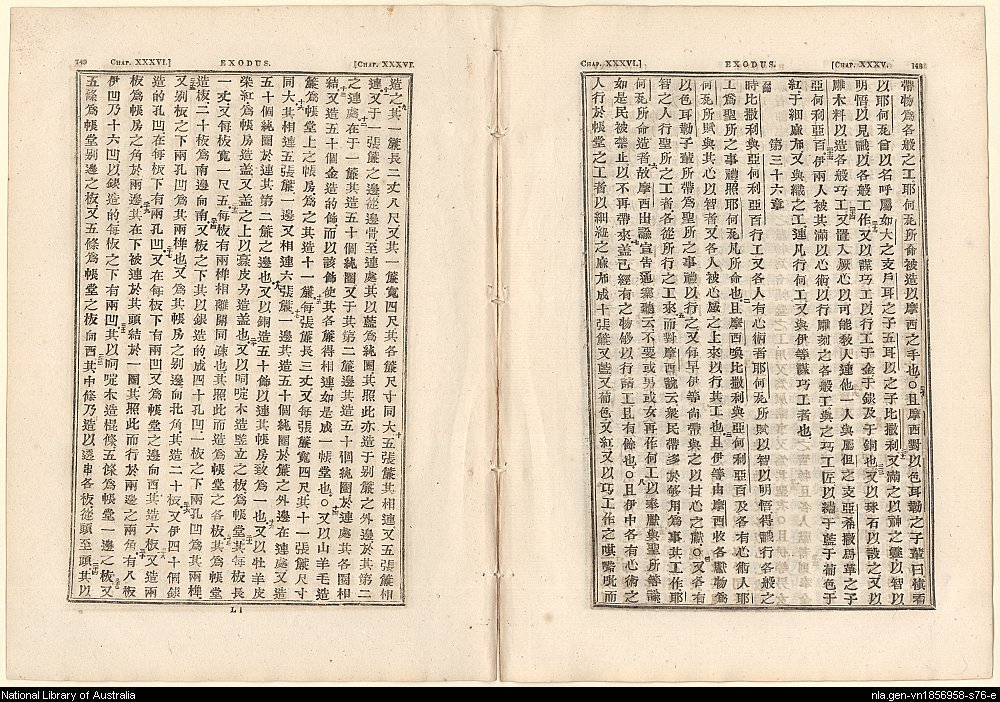 CHAP. XXXVI.] EXODUS. [CHAP. XXXV. 148
帶物爲各般之工耶何瓦所命被造以摩西之手也○且摩西對以色耳勒之子輩曰看
以耶何瓦曾以名呼屬如大之支戶耳之子五耳以之子比撒利又滿之以神之靈以智以
明悟以見識以各般工作又以謀巧工以行工于金于銀及于銅也又以琢石以設之又以
雕木料以造各般巧工又置入厥心以可能教人連他一人與屬但之支亞希撒馬革之子
亞何利亞百伊兩人被其滿以心術以行雕刻之各般工與之巧工匠以繡于藍于葡色于
紅于細麻布又與織之工連凡行何工又與伊等謀巧工者也
第三十六章
爾時比撒利與亞何利亞百行工又各人有心術者耶何瓦所賦以智以明悟得識行各般之
工爲聖所之事禮照耶何瓦凡所命也且摩西喚比撒利與亞何利亞百及各有心術人耶
何瓦所賦與其心以智者又各人被心感之上來以行其工也且伊等由摩西收各獻物爲
以色耳勒子輩所帶爲聖所之事禮以行之又每早伊等尚帶與之以甘心之獻○又各有
智之人行聖所之工者各從所行之工來而對摩西說云衆民帶多於彀用爲事其工作耶
何瓦所命造者故摩西出諭宣告通寨聽云不要或男或女再作何工以奉獻與聖所等
如是民被禁止以不再帶來蓋已經有之物彀以行諸工且有餘也○且伊中各有心術之
人行於帳堂之工者以細之麻布成十張簾又藍又葡色又紅又以巧工作之而
149 CHAP. XXXVI.] EXODUS. [CHAP. XXXVI.
造之其一簾長二丈八尺又其一簾寬四尺其各簾尺寸同大五張簾其相連又五張簾相
連又于一張簾之邊從邊骨至連處其以藍爲絖圈其照此亦造于別簾之外邊於其第二
之連處在于一簾其造五十個絖圈又于其第二簾邊其造五十個絖圈於連處其各圈相
結又造五十個金造的飾而以該飾使其各簾得相連如是成一帳堂也○又以山羊毛造
簾爲帳堂上之帳房爲之其造十一簾每張簾長三丈又每張簾寬四尺其十一張簾尺寸
同大其相連五張簾一邊又相連六張簾一邊其造五十個絖圈於簾之外邊在連處又造
五十個絖圈於連其第二簾之邊也又以銅造五十飾以連其帳房致爲一也又以牡羊皮
染紅爲帳房造蓋又蓋之上以獾皮另造蓋也又以啊啶木造竪立之板爲帳堂其每板長
一丈又每板寬一尺五每板有兩榫相離開同疎也其照此而造爲帳堂之各板其爲帳堂
造板二十板爲南邊向南又板之下其以銀造的成四十孔凹一板之下兩孔凹爲其兩榫
又別板之下兩孔凹爲其兩榫也又爲其帳房之別邊向北角其造二十板又伊四十個銀
造的孔凹在每板下有兩孔凹又在每板下有兩凹又爲帳堂之邊向西其造六板又造兩
板爲帳房之角於兩邊其在下被連於其頭結於一圈其照此而行於兩邊之兩角有八板
伊凹乃十六凹以銀造的每板之下有兩凹其以啊啶木造棍條五條爲帳堂一邊之板又
五條爲帳堂別邊之板又五條爲帳堂之板向西其中條乃造以透串各板從頭至頭其以
L l
National Library of Australia
nla.gen-vn1856958-s76-e